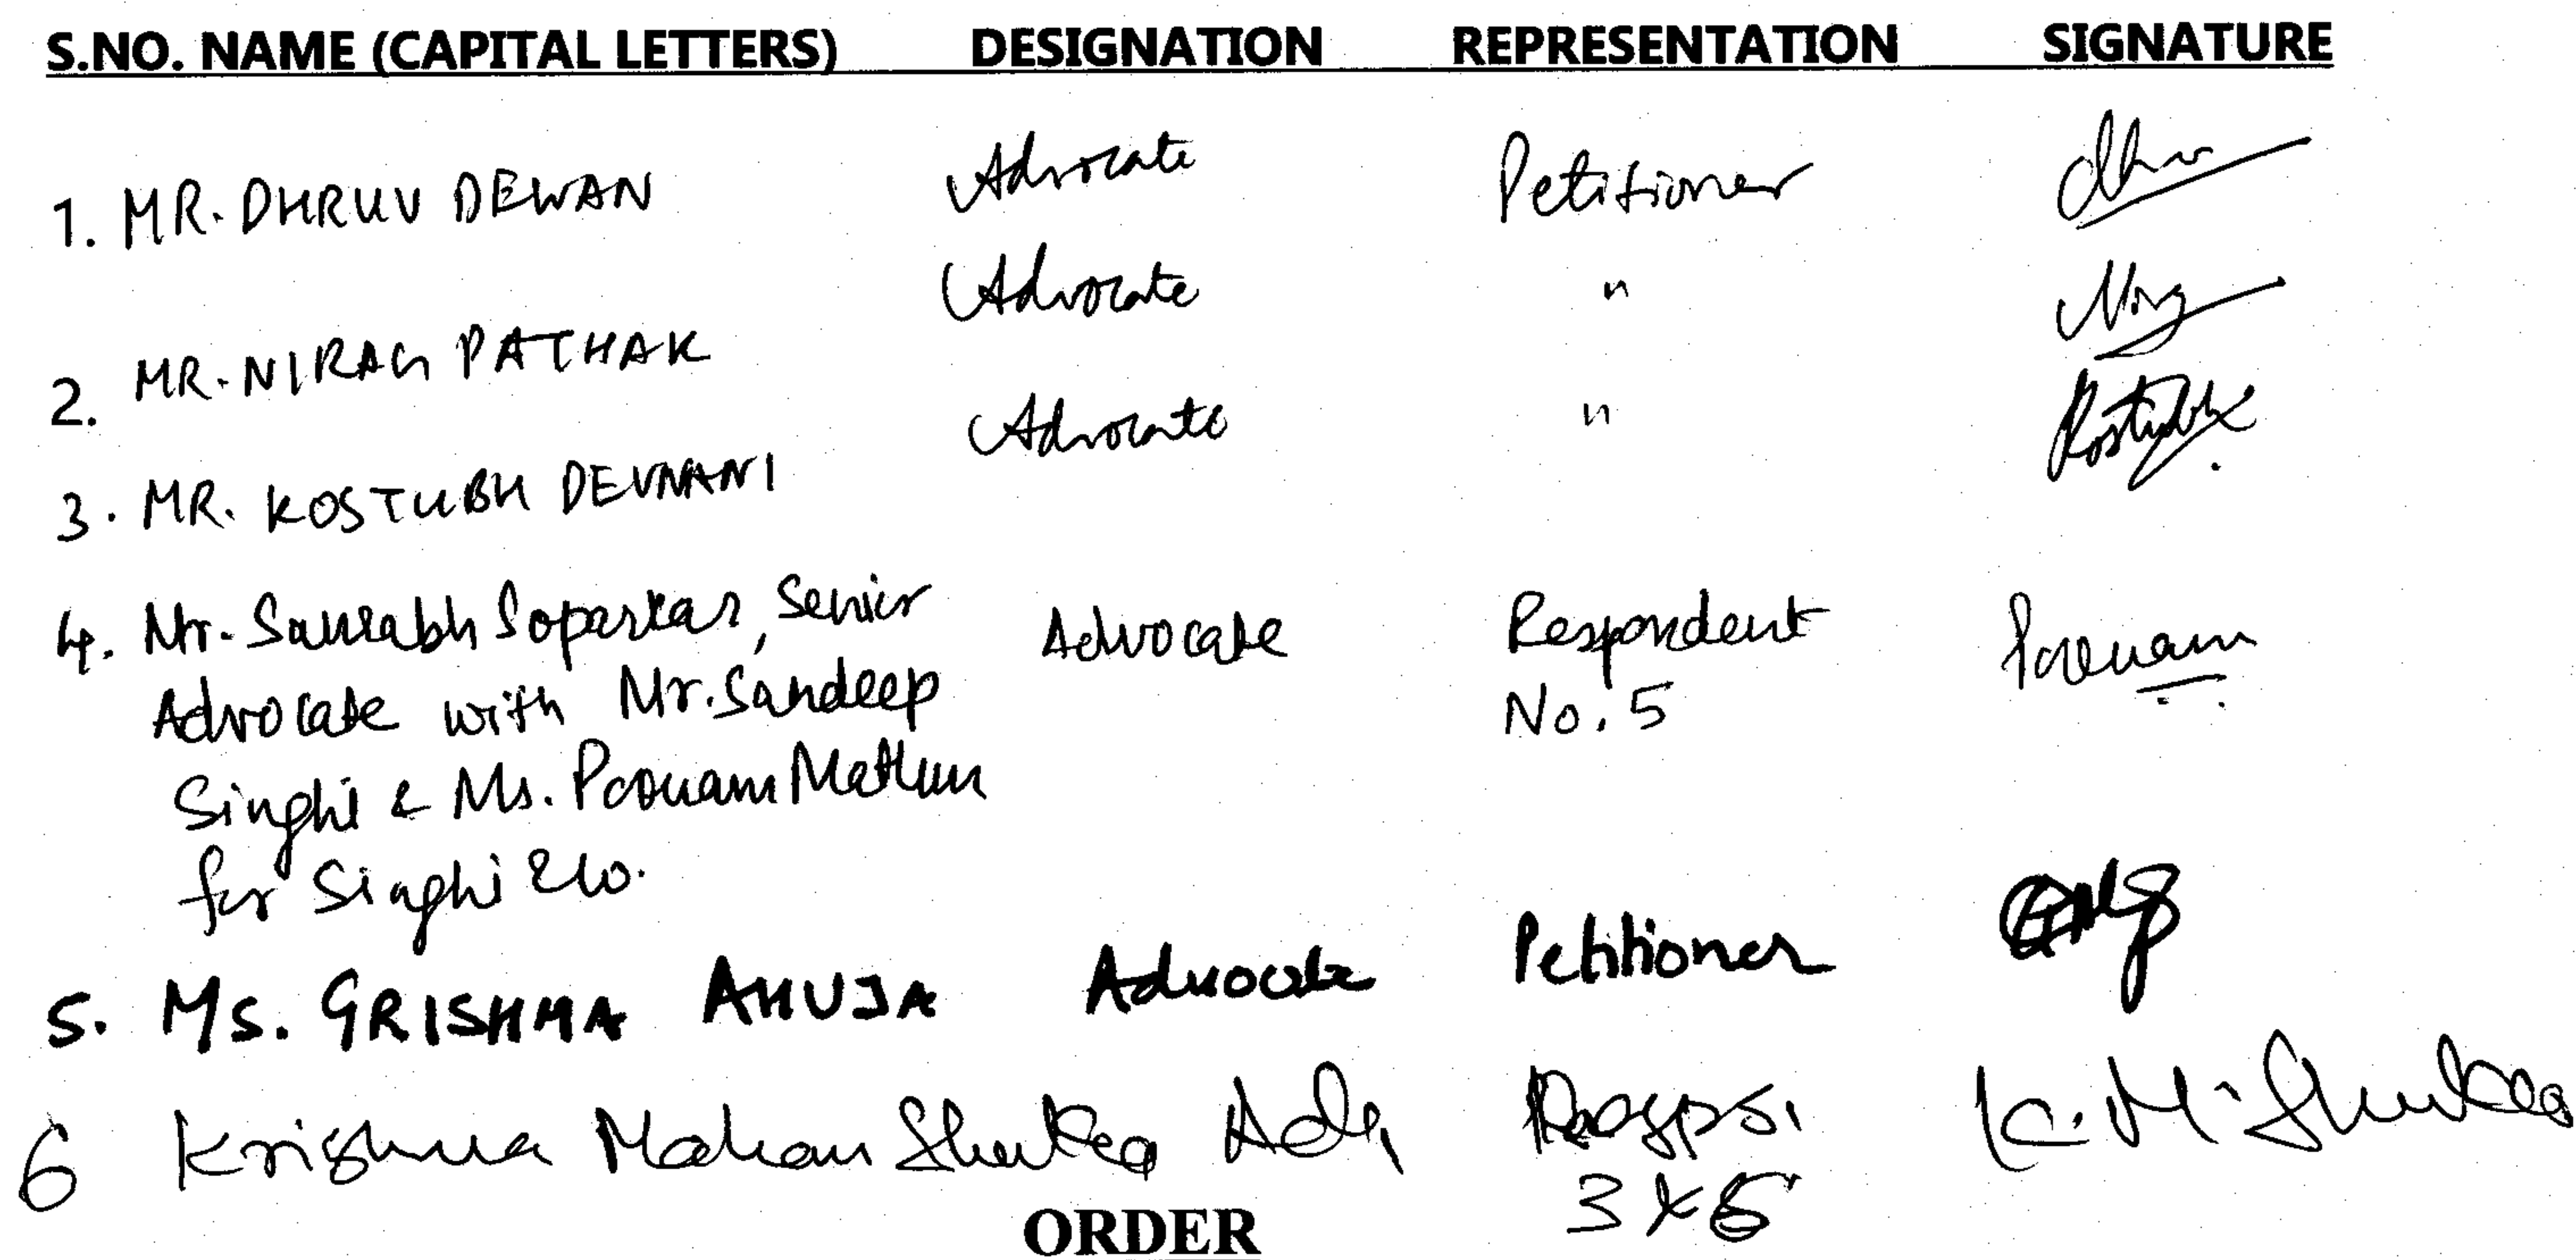 S.NO. NAME (CAPITAL LETTERS) DESIGNATION REPRESENTATION SIGNATURE
1. MR. DHRUV DEWAN Advocate Petitioner
2. MR. NIRAG PATHAK Advocate "
3. MR. KOSTUBH DEVNANI Advocate " Kostubh
4. Mr. Saurabh Soparkar, Senior Advocate Respondent Poonam
Advocate with Mr. Sandeep No. 5
Singhi & Ms. Poonam Mathur
for Singhi & Co.
5. Ms. GRISHMA AHUJA Advocate Petitioner
6 Krishna Mohan Shukla Adv, K. M. Shukla
ORDER